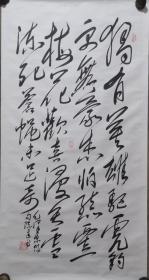 獨有英雄驅虎豹
更無豪杰怕熊羆
梅花歡喜漫天雪
凍死蒼蠅未足奇